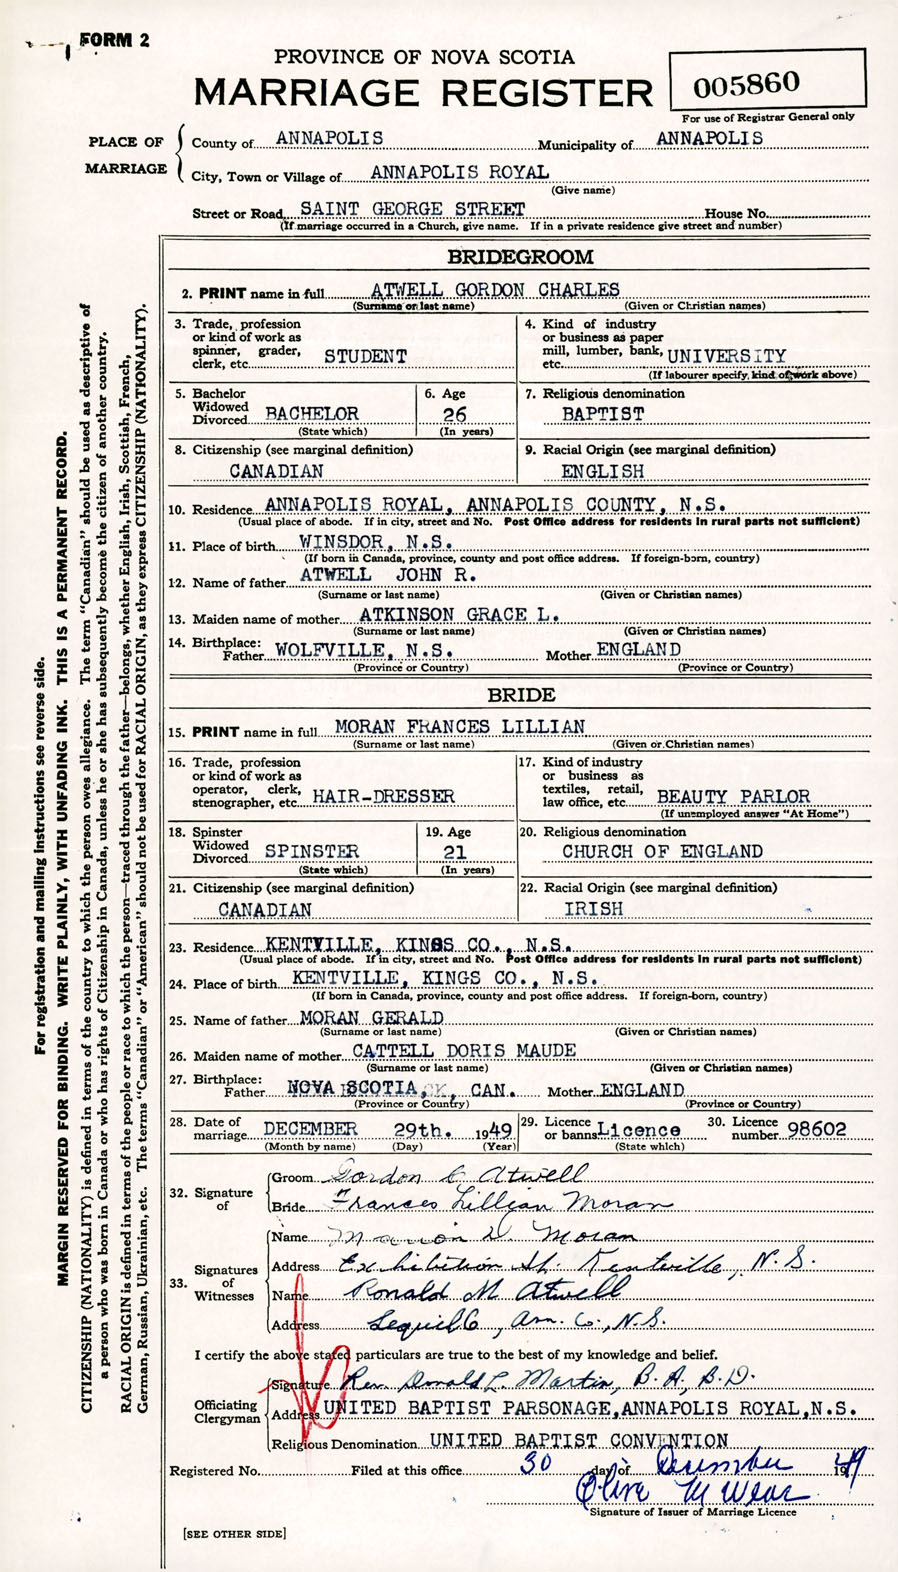 FORM 2
PROVINCE OF NOVA SCOTIA
MARRIAGE REGISTER
005860
For use of Registrar General only
PLACE OF MARRIAGE
County of ANNAPOLIS Municipality of ANNAPOLIS
City, Town or Village of ANNAPOLIS ROYAL
(Give name)
Street or Road SAINT GEORGE STREET House No.
(If marriage occurred in a Church, give name. If in a private residence give street and number)
BRIDEGROOM
2. PRINT name in full ATWELL GORDON CHARLES
(Surname or last name) (Given or Christian names)
3. Trade, profession or kind of work as spinner, grader, clerk, etc. STUDENT
4. Kind of industry or business as paper mill, lumber, bank, etc. UNIVERSITY
(If labourer specify kind of work above)
5. Bachelor Widowed Divorced BACHELOR
(State which)
6. Age 26
(In years)
7. Religious denomination
BAPTIST
8. Citizenship (see marginal definition)
CANADIAN
9. Racial Origin (see marginal definition)
ENGLISH
10. Residence ANNAPOLIS ROYAL, ANNAPOLIS COUNTY, N.S.
(Usual place of abode. If in city, street and No. Post Office address for residents in rural parts not sufficient)
11. Place of birth WINSDOR, N.S.
(If born in Canada, province, county and post office address. If foreign-born, country)
12. Name of father ATWELL JOHN R.
(Surname or last name) (Given or Christian names)
13. Maiden name of mother ATKINSON GRACE L.
(Surname or last name) (Given or Christian names)
14. Birthplace:
Father WOLFVILLE, N.S. Mother ENGLAND
(Province or Country) (Province or Country)
BRIDE
15. PRINT name in full MORAN FRANCES LILLIAN
(Surname or last name) (Given or Christian names)
16. Trade, profession or kind of work as operator, clerk, stenographer, etc. HAIR-DRESSER
17. Kind of industry or business as textiles, retail, law office, etc. BEAUTY PARLOR
(If unemployed answer "At Home")
18. Spinster Widowed Divorced SPINSTER
(State which)
19. Age 21
(In years)
20. Religious denomination
CHURCH OF ENGLAND
21. Citizenship (see marginal definition)
CANADIAN
22. Racial Origin (see marginal definition)
IRISH
23. Residence KENTVILLE, KINGS CO., N.S.
(Usual place of abode. If in city, street and No. Post Office address for residents in rural parts not sufficient)
24. Place of birth KENTVILLE, KINGS CO., N.S.
(If born in Canada, province, county and post office address. If foreign-born, country)
25. Name of father MORAN GERALD
(Surname or last name) (Given or Christian names)
26. Maiden name of mother CATTELL DORIS MAUDE
(Surname or last name) (Given or Christian names)
27. Birthplace:
Father NOVA SCOTIA, CAN. Mother ENGLAND
(Province or Country) (Province or Country)
28. Date of marriage DECEMBER 29th. 1949
(Month by name) (Day) (Year)
29. Licence or banns Licence
(State which)
30. Licence number 98602
32. Signature of
Groom Gordon C Atwell
Bride Frances Lillian Moran
33. Signatures of Witnesses
Name Marion D. Moran
Address Exhibition St. Kentville, N.S.
Name Ronald M Atwell
Address Lequille, Ann. Co., N.S.
I certify the above stated particulars are true to the best of my knowledge and belief.
Officiating Clergyman
Signature Rev. Donald L. Martin, B.A., B.D.
Address UNITED BAPTIST PARSONAGE, ANNAPOLIS ROYAL, N.S.
Religious Denomination UNITED BAPTIST CONVENTION
Registered No. Filed at this office 30 day of December 1949
Olive M Wear
Signature of Issuer of Marriage Licence
[SEE OTHER SIDE]
For registration and mailing instructions see reverse side.
MARGIN RESERVED FOR BINDING. WRITE PLAINLY, WITH UNFADING INK. THIS IS A PERMANENT RECORD.
CITIZENSHIP (NATIONALITY) is defined in terms of the country to which the person owes allegiance. The term "Canadian" should be used as descriptive of
a person who was born in Canada or who has rights of Citizenship in Canada, unless he or she has subsequently become the citizen of another country.
RACIAL ORIGIN is defined in terms of the people or race to which the person—traced through the father—belongs, whether English, Irish, Scottish, French,
German, Russian, Ukrainian, etc. The terms "Canadian" or "American" should not be used for RACIAL ORIGIN, as they express CITIZENSHIP (NATIONALITY).